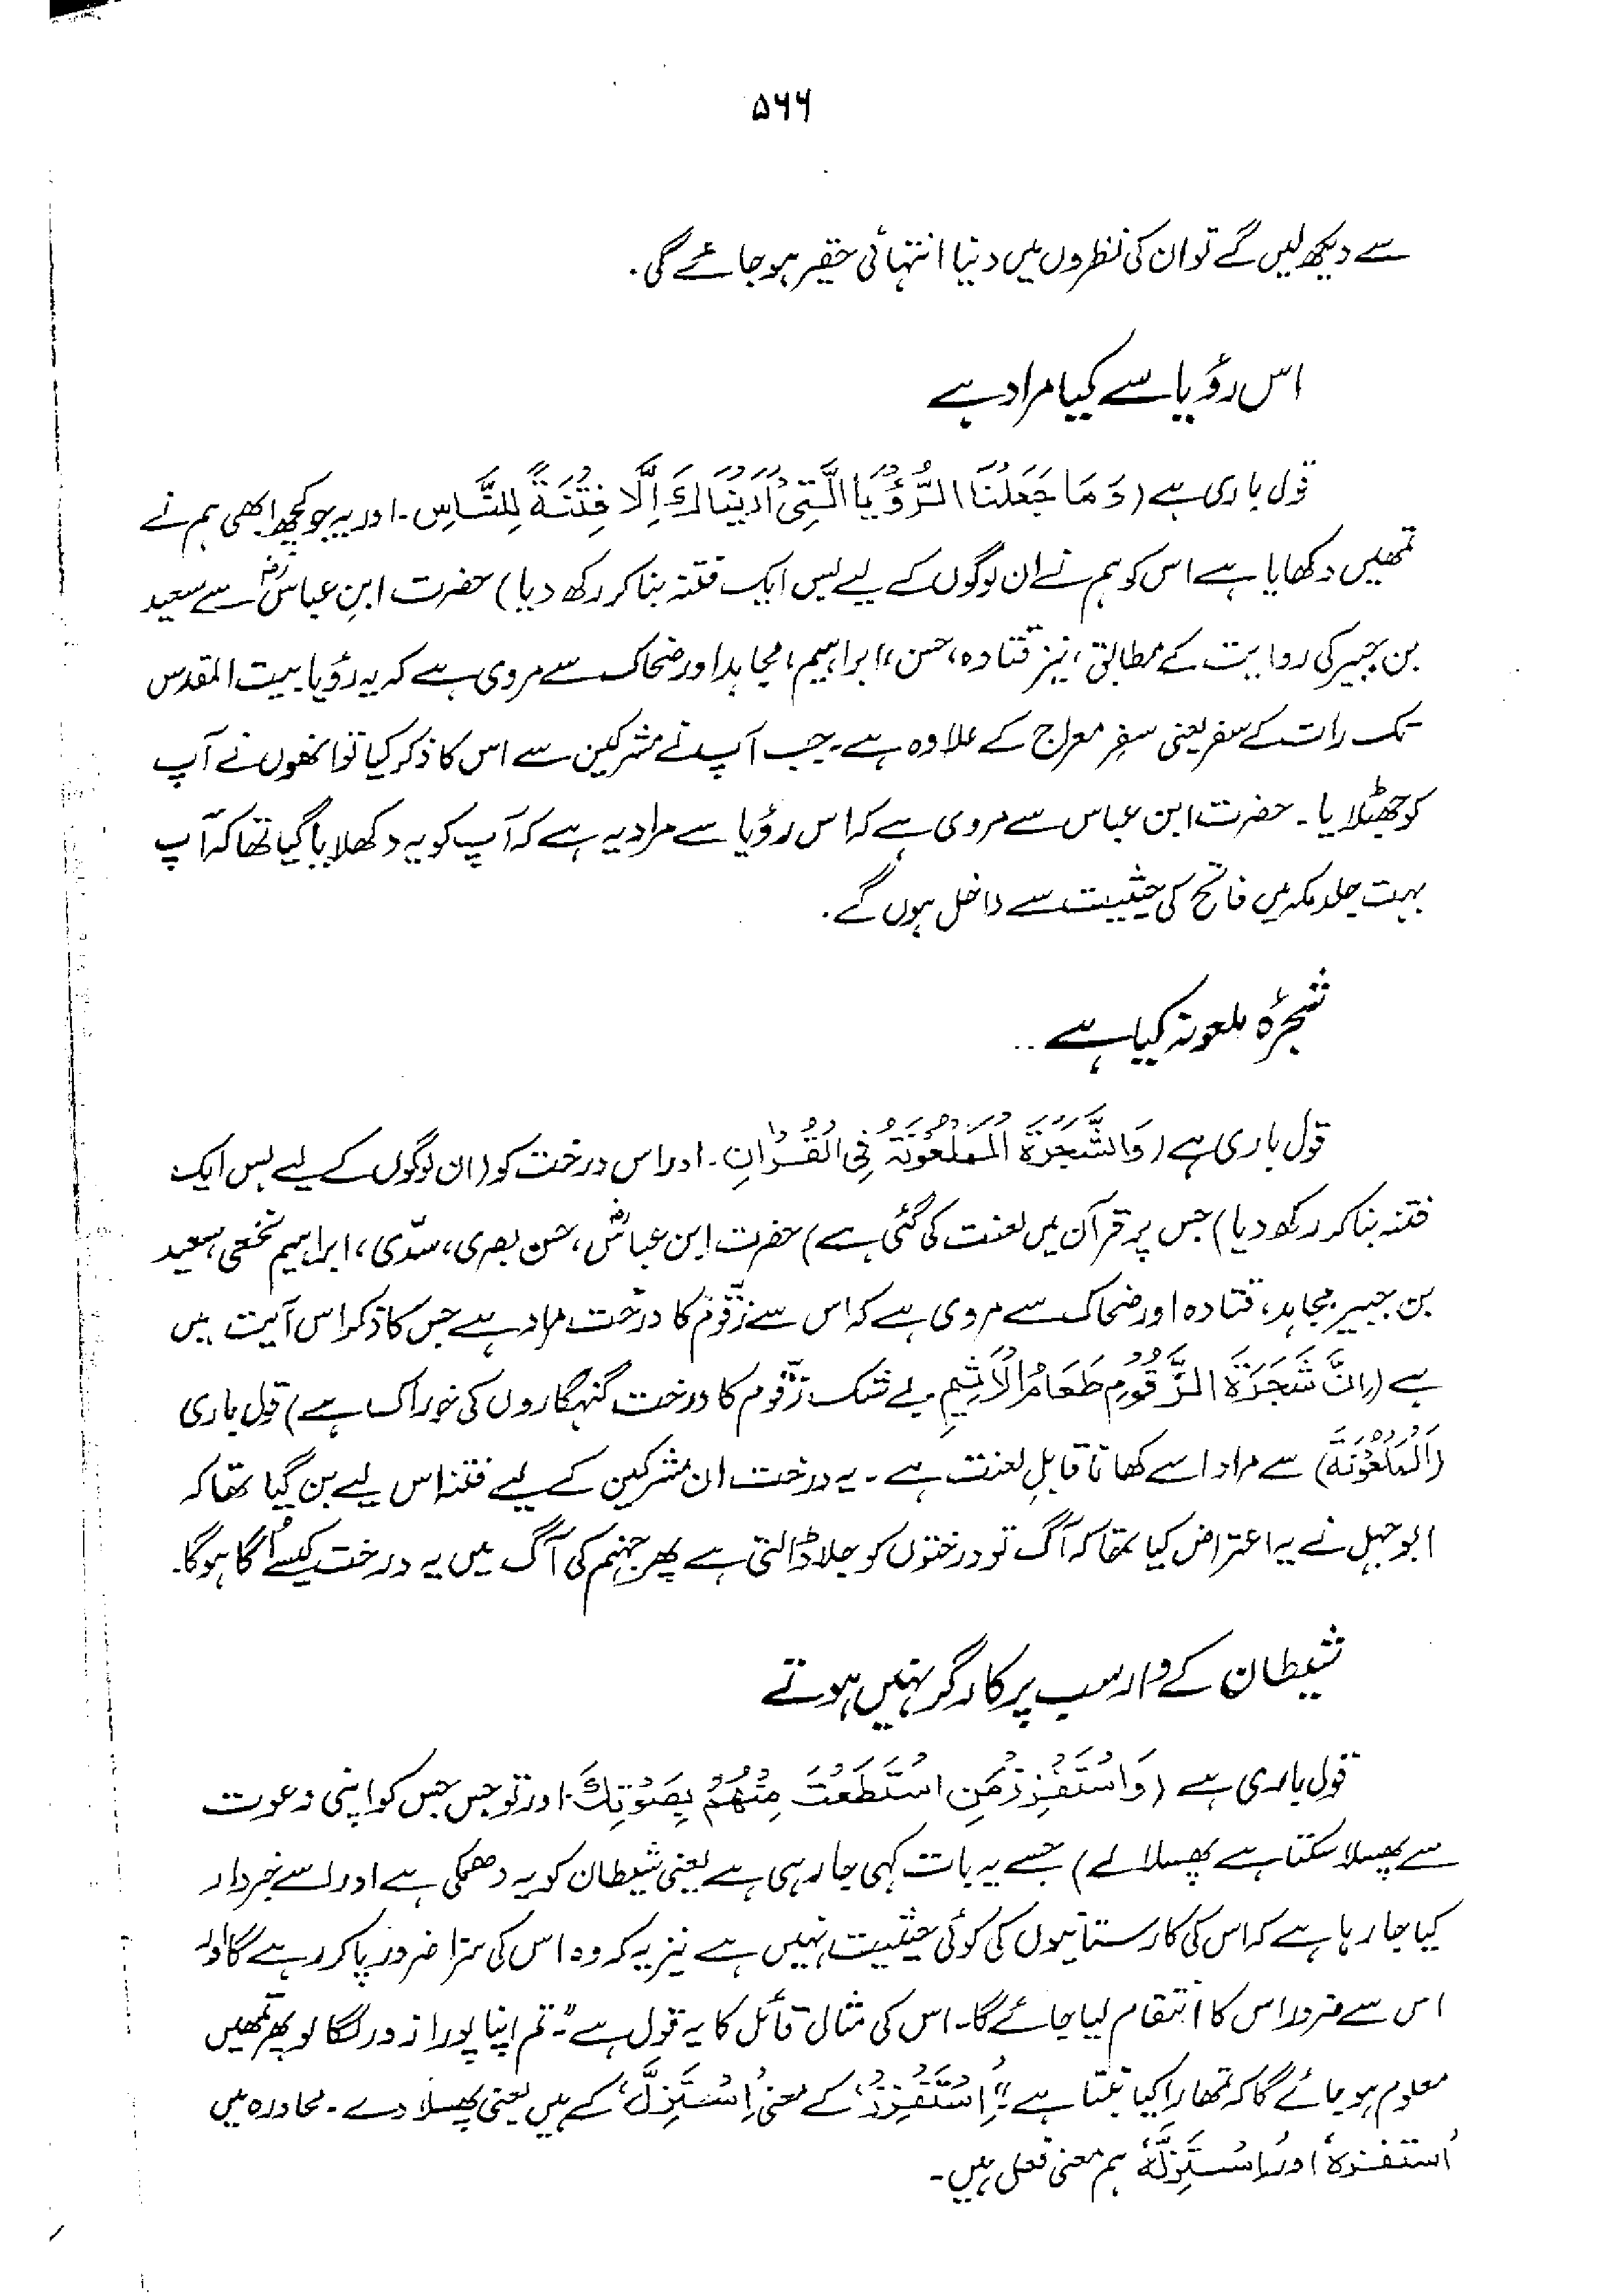 ۵۶۶
سے دیکھ لیں گے تو ان کی نظروں میں دنیا انتہائی حقیر ہو جائے گی.
اس رؤیا سے کیا مراد ہے
قول باری ہے (وَمَا جَعَلْنَا الرُّؤْيَا الَّتِيْ اَرَيْنَاكَ اِلَّا فِتْنَةً لِلنَّاسِ۔ اور یہ جو کچھ ابھی ہم نے
تمھیں دکھایا ہے اس کو ہم نے ان لوگوں کے لیے بس ایک فتنہ بنا کر رکھ دیا) حضرت ابنِ عباسؓ سے سعید
بن جبیر کی روایت کے مطابق، نیز قتادہ، حسن، ابراہیم، مجاہد اور ضحاک سے مروی ہے کہ یہ رؤیا بیت المقدس
تک رات کے سفر یعنی سفرِ معراج کے علاوہ ہے۔ جب آپ نے مشرکین سے اس کا ذکر کیا تو انھوں نے آپ
کو جھٹلایا۔ حضرت ابن عباس سے مروی ہے کہ اس رؤیا سے مراد یہ ہے کہ آپ کو یہ دکھلایا گیا تھا کہ آپ
بہت جلد مکہ میں فاتح کی حیثیت سے داخل ہوں گے.
شجرۂ ملعونہ کیا ہے
قول باری ہے (وَالشَّجَرَةَ الْمَلْعُوْنَةَ فِي الْقُرْاٰنِ۔ اور اس درخت کو (ان لوگوں کے لیے بس ایک
فتنہ بنا کر رکھ دیا) جس پر قرآن میں لعنت کی گئی ہے) حضرت ابن عباسؓ، حسن بصری، سدّی، ابراہیم نخعی، سعید
بن جبیر، مجاہد، قتادہ اور ضحاک سے مروی ہے کہ اس سے زقّوم کا درخت مراد ہے جس کا ذکر اس آیت میں
ہے (اِنَّ شَجَرَةَ الزَّقُّوْمِ طَعَامُ الْاَثِيْمِ بے شک زقّوم کا درخت گنہگاروں کی خوراک ہے) قول باری
(اَلْمَلْعُوْنَةَ) سے مراد اسے کھانا قابلِ لعنت ہے۔ یہ درخت ان مشرکین کے لیے فتنہ اس لیے بن گیا تھا کہ
ابوجہل نے یہ اعتراض کیا تھا کہ آگ تو درختوں کو جلا ڈالتی ہے پھر جہنم کی آگ میں یہ درخت کیسے اُگا ہوگا۔
شیطان کے وار سب پر کارگر نہیں ہوتے
قول باری ہے (وَاسْتَفْزِزْ مَنِ اسْتَطَعْتَ مِنْهُمْ بِصَوْتِكَ۔ اور تو جس جس کو اپنی دعوت
سے پھسلا سکتا ہے پھسلا لے) جسے یہ بات کہی جا رہی ہے یعنی شیطان کو یہ دھمکی ہے اور اسے خبردار
کیا جا رہا ہے کہ اس کی کارستانیوں کی کوئی حیثیت نہیں ہے نیز یہ کہ وہ اس کی سزا ضرور پا کر رہے گا اور
اس سے ضرور اس کا انتقام لیا جائے گا۔ اس کی مثال قائل کا یہ قول ہے "تم اپنا پورا زور لگا لو پھر تمھیں
معلوم ہو جائے گا کہ تمھارا کیا بنتا ہے" اِسْتَفْزِزْ' کے معنی 'اِسْتَزِلَّ' کے ہیں یعنی پھسلا دے۔ محاورہ میں
'استفزہ' اور 'اِسْتَزَلَّهٗ' ہم معنی فعل ہیں۔